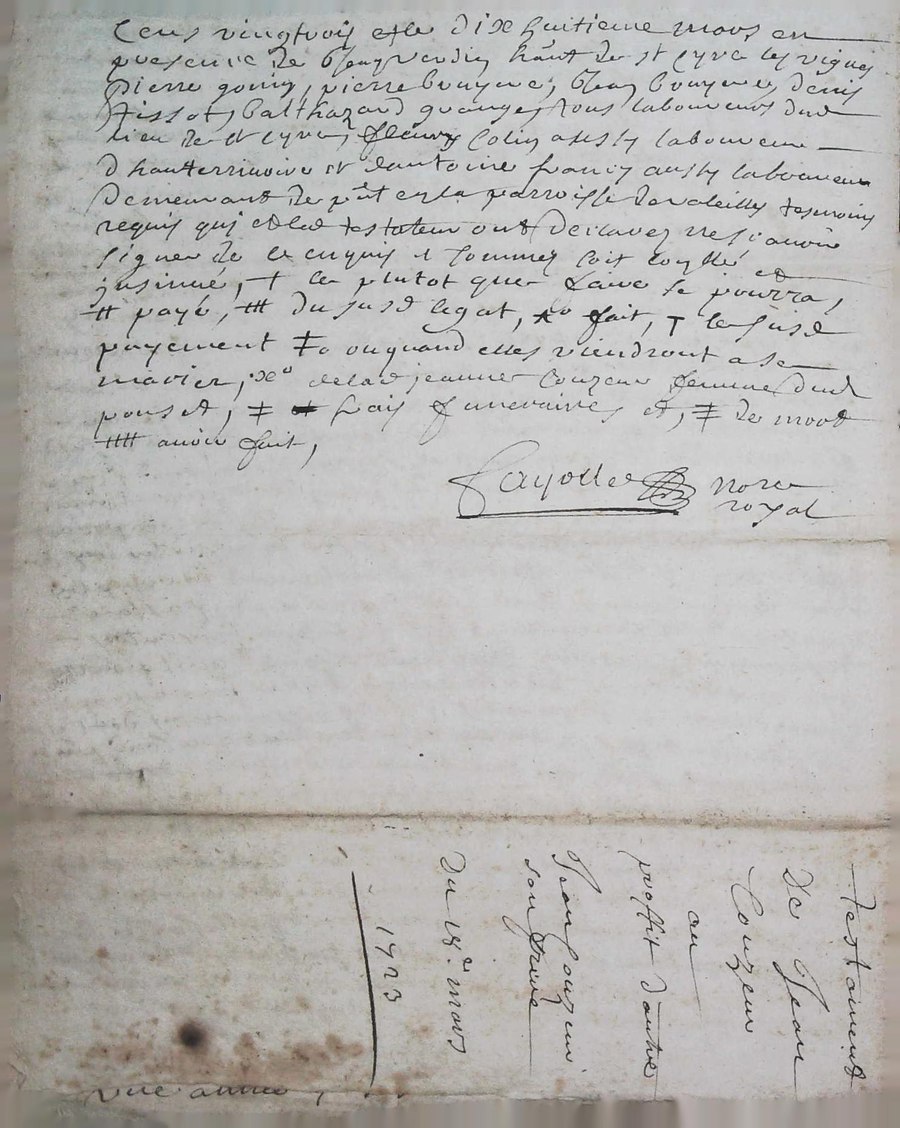 Cens vingtrois et le dixe huitieme mars en
presence de Jean verdin hãut de st Cyre les vignes
pierre gonin, pierre bruyere, Jean bruyere, denis
tissot, balthazard grange, tous laboureurs dud
lieu de st Cyre, fleury Colin aussy laboureur
d'hauterrivoire et dantoine francy aussy laboureur
demeurant de pñt en la parroisse de valeille tesmoins
requis qui et led testateur ont declarez ne scavoir
signer de ce enquis et sommez soit
jnsinué, + le plutot que faire se pourra,
# payé, # du susd legat, fait, + le susd
payement ou quand elles viendront a se
marier, xº de lad jeanne Couzeur femme dud
pouset, ‡ frais funeraires et, ‡ de mood
# avoir fait,
Fayolle nore
royal
testament
de Jean
Couzeur
au
proffit dautre
Jean Couzeur
son frere
Du 18.e mars
1723
une année,